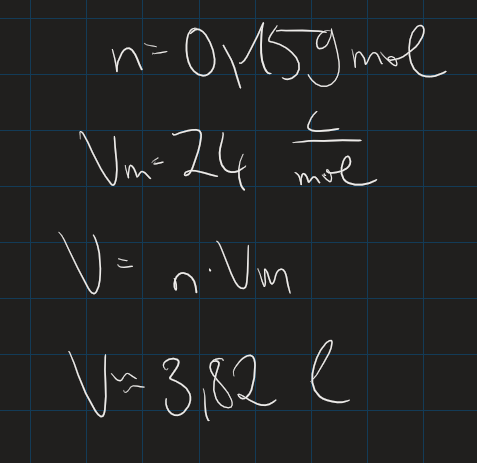 n = 0,159 mol
Vm = 24 L/mol
V = n · Vm
V ≈ 3,82 l